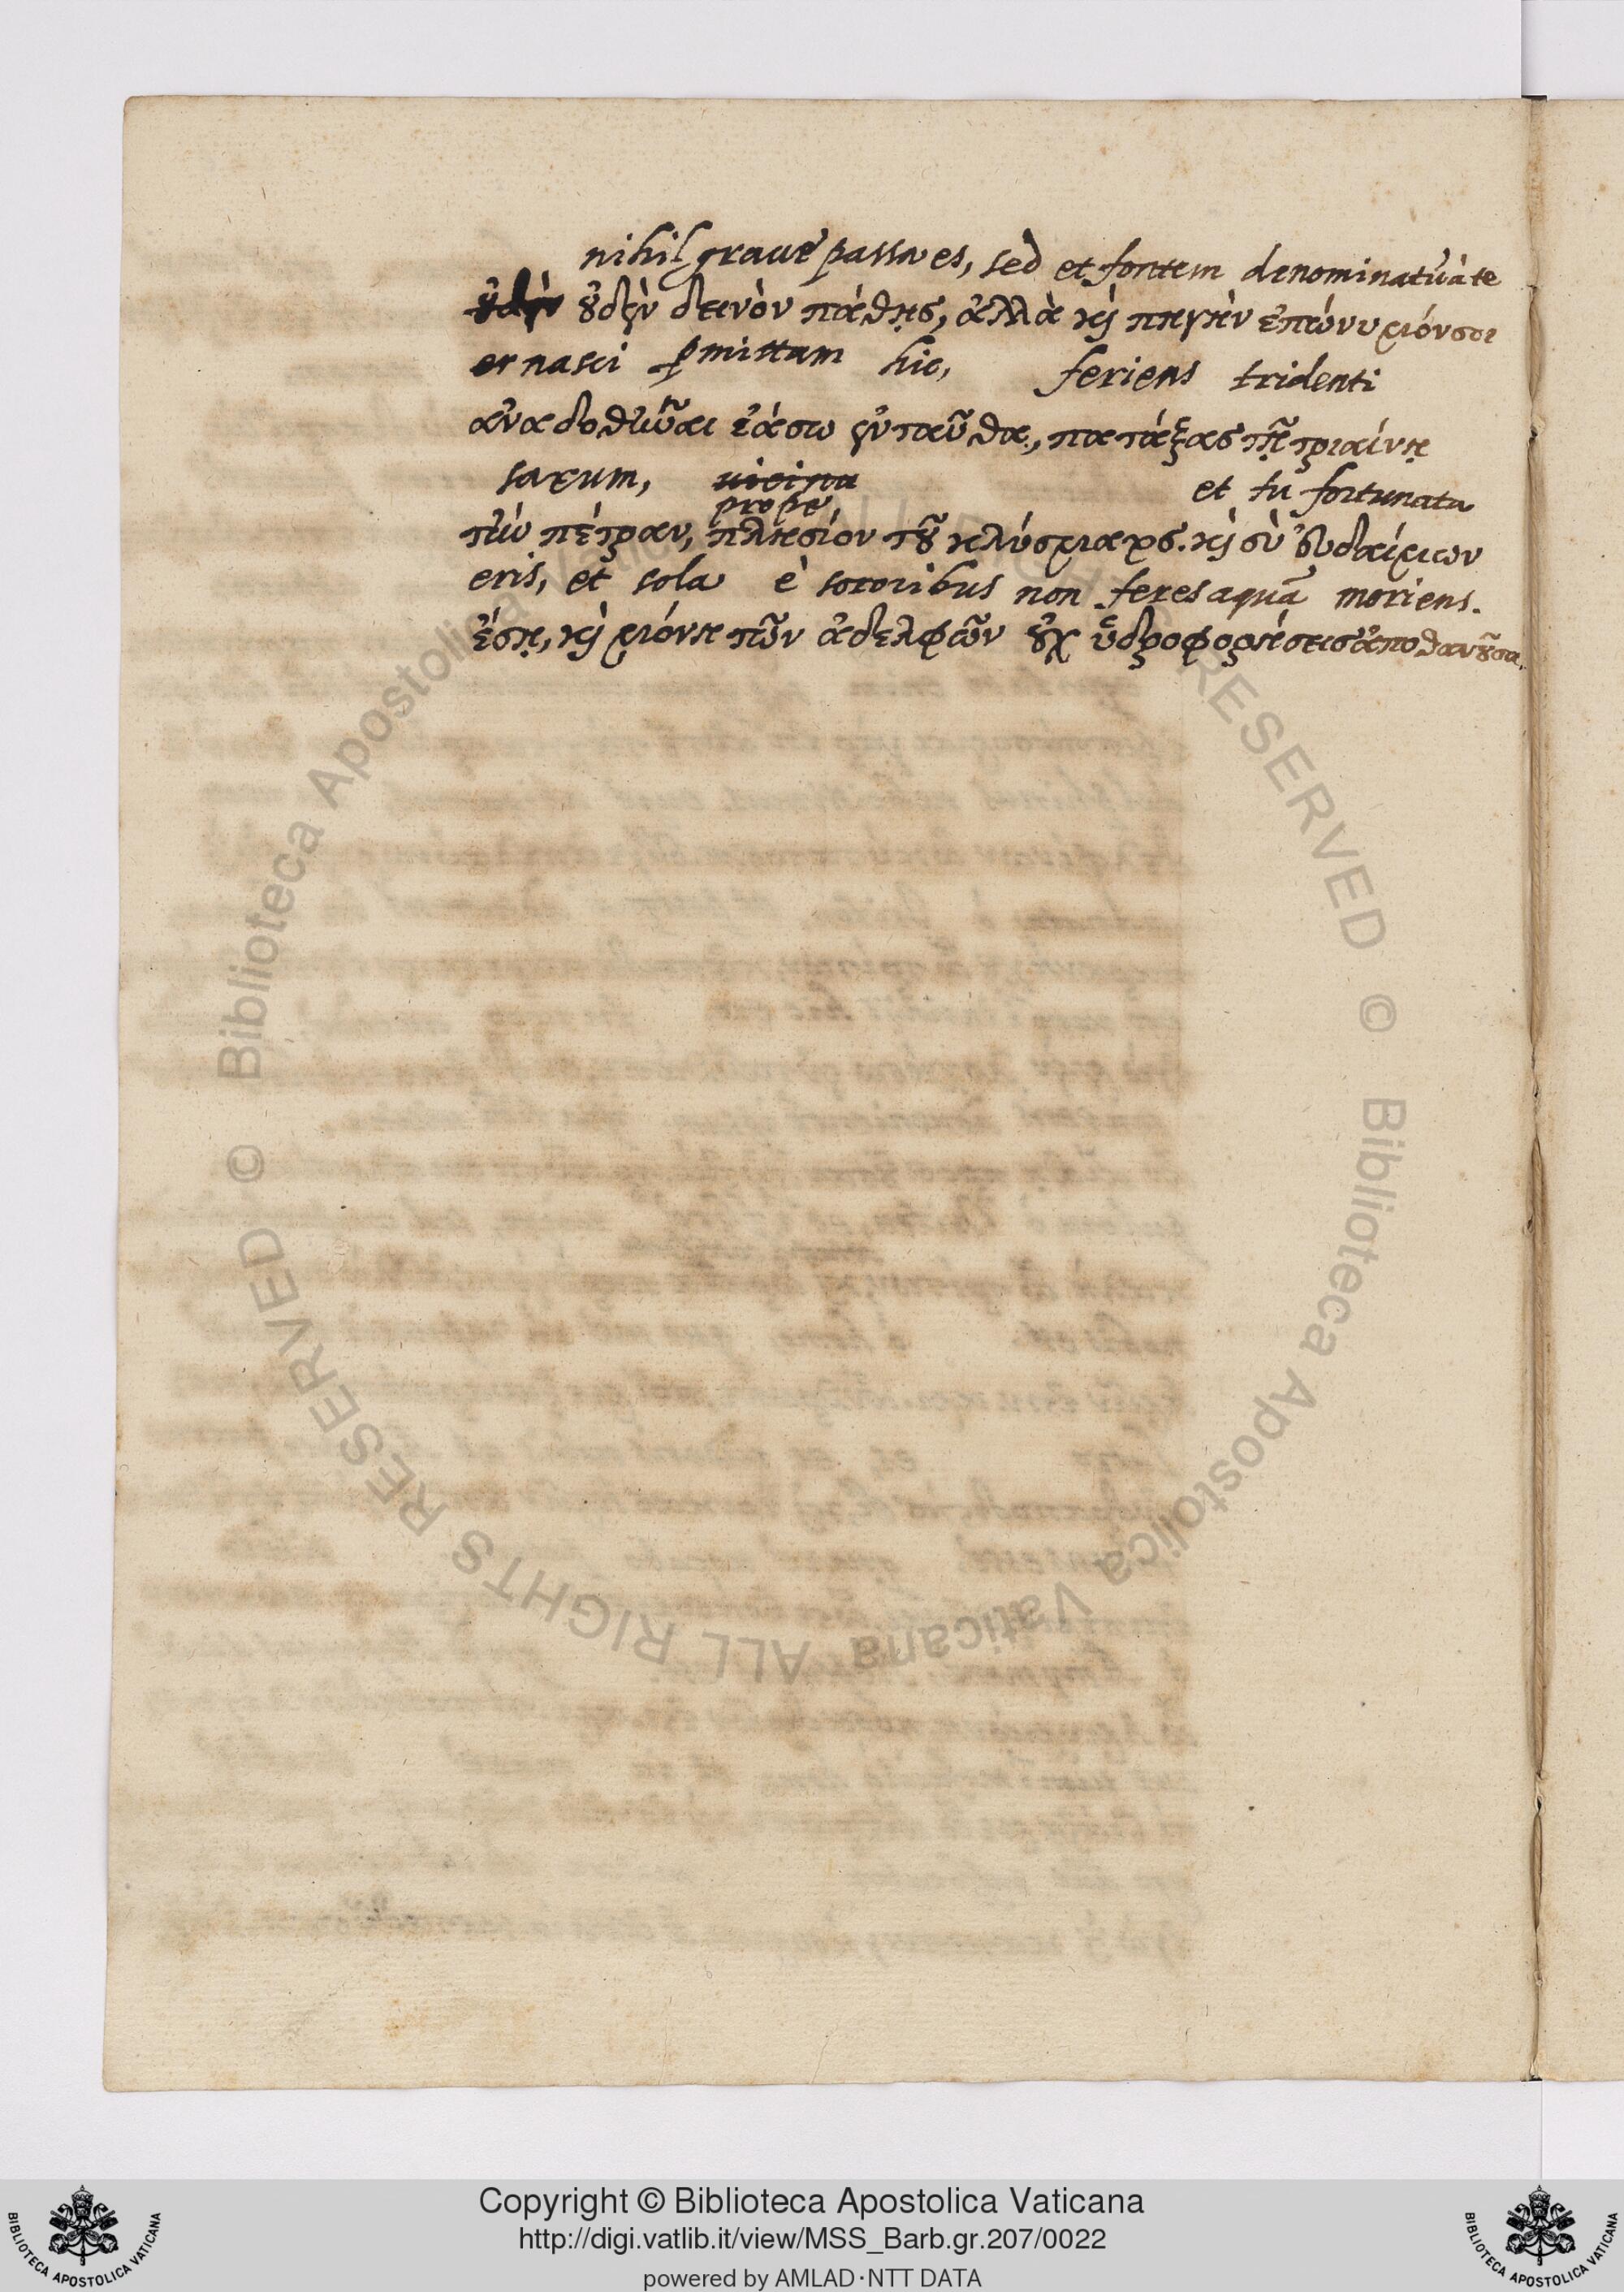 nihil graue passa es, sed et fontem denominatũ à te
οὐδὲν οὐδὲν δεινὸν πάθῃς, ἀλλὰ καὶ πηγὴν ἐπώνυμόν σοι
enasci pmittam hic, feriens tridenti
ἀναδοθῆναι ἐάσω ἐνταῦθα, πατάξας τῇ τριαίνῃ
saxum, uicina et tu fortunata
prope,
τὴν πέτραν, πλησίον τοῦ κλύσματος. καὶ σὺ εὐδαίμων
eris, et sola è sororibus non feres aquã moriens.
ἔσῃ, καὶ μόνη τῶν ἀδελφῶν οὐχ ὑδροφορήσεις ἀποθανοῦσα.
© Biblioteca Apostolica Vaticana ALL RIGHTS RESERVED
© Biblioteca Apostolica Vaticana ALL RIGHTS RESERVED
Copyright © Biblioteca Apostolica Vaticana
http://digi.vatlib.it/view/MSS_Barb.gr.207/0022
powered by AMLAD·NTT DATA
BIBLIOTECA APOSTOLICA VATICANA
BIBLIOTECA APOSTOLICA VATICANA